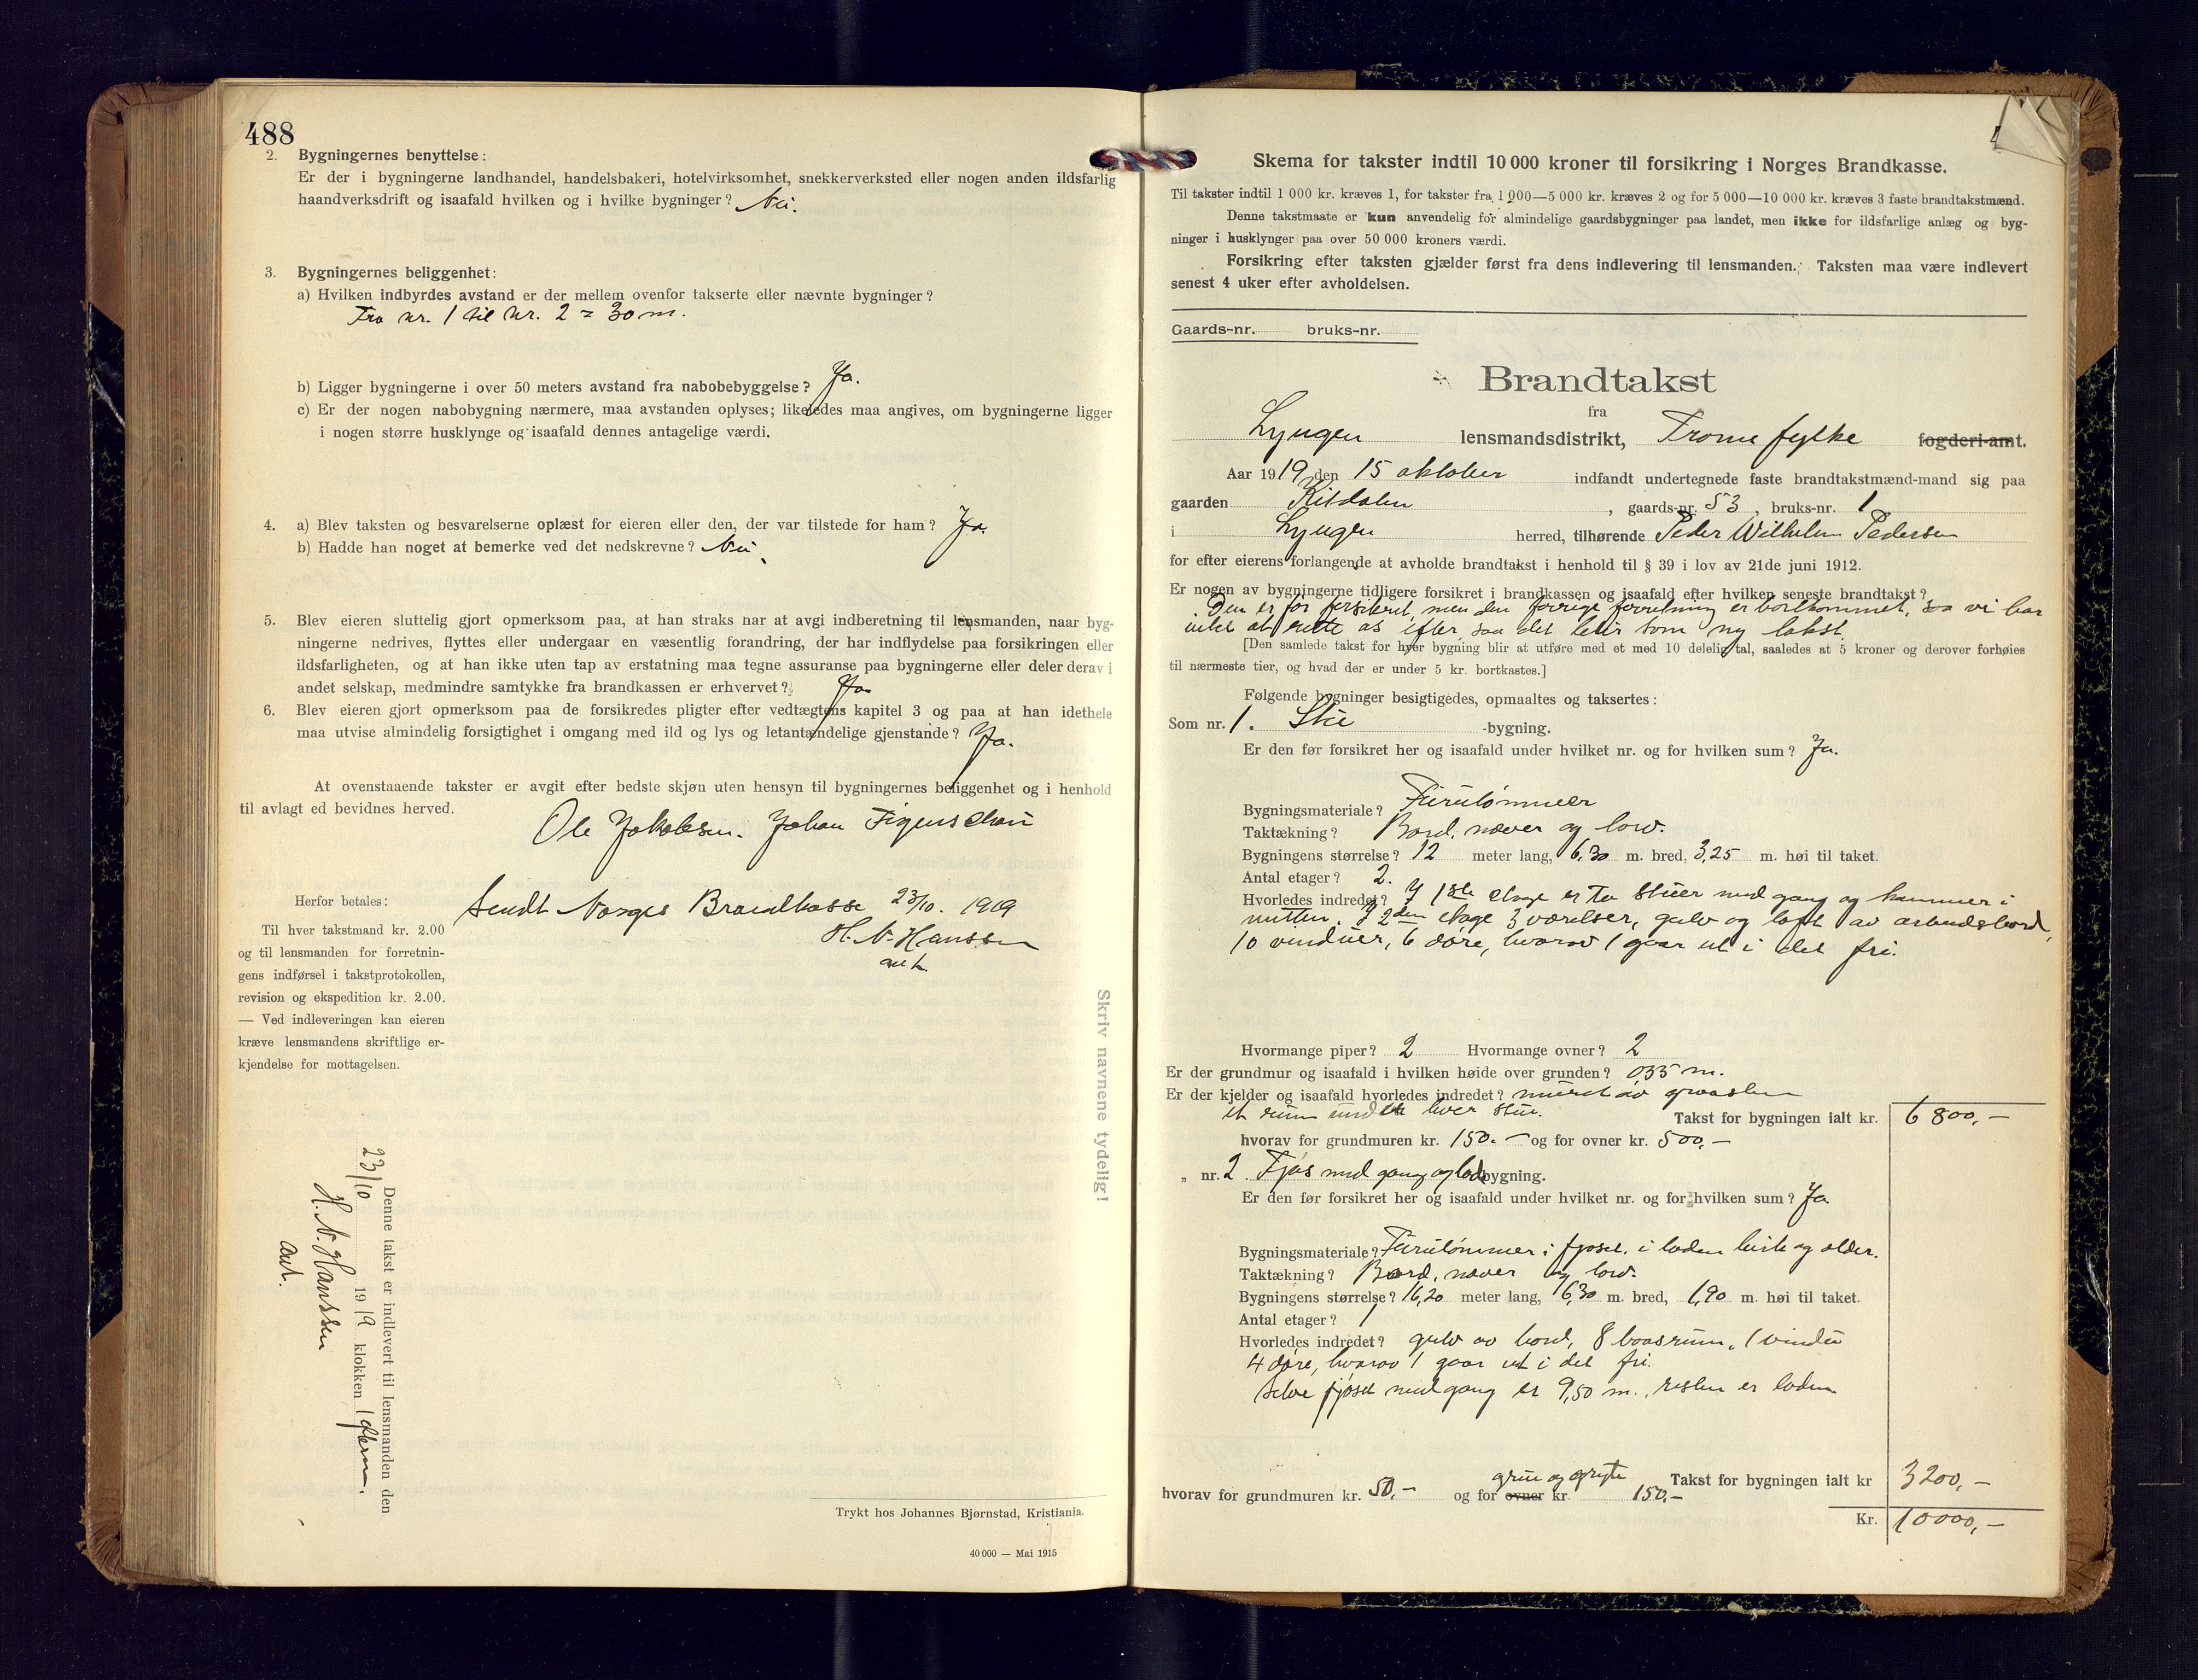 488
2. Bygningernes benyttelse:
Er der i bygningerne landhandel, handelsbakeri, hotelvirksomhet, snekkerverksted eller nogen anden ildsfarlig
haandverksdrift og isaafald hvilken og i hvilke bygninger? Nei.
3. Bygningernes beliggenhet:
a) Hvilken indbyrdes avstand er der mellem ovenfor takserte eller nævnte bygninger?
Fra nr. 1 til nr. 2 = 30 m.
b) Ligger bygningerne i over 50 meters avstand fra nabobebyggelse? Ja.
c) Er der nogen nabobygning nærmere, maa avstanden oplyses; likeledes maa angives, om bygningerne ligger
i nogen større husklynge og isaafald dennes antagelige værdi.
4. a) Blev taksten og besvarelserne oplæst for eieren eller den, der var tilstede for ham? Ja.
b) Hadde han noget at bemerke ved det nedskrevne? Nei.
5. Blev eieren sluttelig gjort opmerksom paa, at han straks har at avgi indberetning til lensmanden, naar byg-
ningerne nedrives, flyttes eller undergaar en væsentlig forandring, der har indflydelse paa forsikringen eller
ildsfarligheten, og at han ikke uten tap av erstatning maa tegne assuranse paa bygningerne eller deler derav i
andet selskap, medmindre samtykke fra brandkassen er erhvervet? Ja
6. Blev eieren gjort opmerksom paa de forsikredes pligter efter vedtægtens kapitel 3 og paa at han idethele
maa utvise almindelig forsigtighet i omgang med ild og lys og letantændelige gjenstande? Ja.
At ovenstaaende takster er avgit efter bedste skjøn uten hensyn til bygningernes beliggenhet og i henhold
til avlagt ed bevidnes herved.
Ole Jakobsen. Johan Figenschau
Sendt Norges Brandkasse 23/10. 1919
H. N. Hanssen
aut.
Herfor betales:
Til hver takstmand kr. 2.00
og til lensmanden for forretnin-
gens indførsel i takstprotokollen,
revision og ekspedition kr. 2.00.
— Ved indleveringen kan eieren
kræve lensmandens skriftlige er-
kjendelse for mottagelsen.
Skriv navnene tydelig!
Denne takst er indlevert til lensmanden den
23/10 1919 klokken 1 efterm.
H. N. Hanssen
aut.
Trykt hos Johannes Bjørnstad, Kristiania.
40 000 — Mai 1915
Skema for takster indtil 10 000 kroner til forsikring i Norges Brandkasse.
Til takster indtil 1 000 kr. kræves 1, for takster fra 1 000—5 000 kr. kræves 2 og for 5 000—10 000 kr. kræves 3 faste brandtakstmænd.
Denne takstmaate er kun anvendelig for almindelige gaardsbygninger paa landet, men ikke for ildsfarlige anlæg og byg-
ninger i husklynger paa over 50 000 kroners værdi.
Forsikring efter taksten gjælder først fra dens indlevering til lensmanden. Taksten maa være indlevert
senest 4 uker efter avholdelsen.
Gaards-nr. bruks-nr.
Brandtakst
fra
Lyngen lensmandsdistrikt, Troms fylke fogderi-amt.
Aar 1919 den 15 oktober indfandt undertegnede faste brandtakstmænd-mand sig paa
gaarden Kitdalen, gaards-nr. 53, bruks-nr. 1
i Lyngen herred, tilhørende Peder Wilhelm Pedersen
for efter eierens forlangende at avholde brandtakst i henhold til § 39 i lov av 21de juni 1912.
Er nogen av bygningerne tidligere forsikret i brandkassen og isaafald efter hvilken seneste brandtakst?
Den er før forsikret, men den forrige forretning er bortkommet, saa vi har
intet at rette os efter, saa det blir som ny takst.
[Den samlede takst for hver bygning blir at utføre med et med 10 delelig tal, saaledes at 5 kroner og derover forhøies
til nærmeste tier, og hvad der er under 5 kr. bortkastes.]
Følgende bygninger besigtigedes, opmaaltes og taksertes:
Som nr. 1. Stue -bygning.
Er den før forsikret her og isaafald under hvilket nr. og for hvilken sum? Ja.
Bygningsmateriale? Furutømmer
Taktækning? Bord, næver og torv.
Bygningens størrelse? 12 meter lang, 6,30 m. bred, 3,25 m. høi til taket.
Antal etager? 2.
Hvorledes indredet? I 1ste etage er to stuer med gang og kammer i
mitten. I 2den etage 3 værelser, gulv og loft av arbeidsbord,
10 vinduer, 6 døre, hvorav 1 gaar ut i det fri.
Hvormange piper? 2 Hvormange ovner? 2
Er der grundmur og isaafald i hvilken høide over grunden? 0,35 m.
Er der kjelder og isaafald hvorledes indredet? muret av graasten
et rum under hver stue. Takst for bygningen ialt kr. 6800,-
hvorav for grundmuren kr. 150.- og for ovner kr. 500,-
„ nr. 2 Fjøs med gang og lade bygning.
Er den før forsikret her og isaafald under hvilket nr. og for hvilken sum? Ja
Bygningsmateriale? Furutømmer i fjøset, i laden birk og older.
Taktækning? Bord, næver og torv.
Bygningens størrelse? 16,20 meter lang, 6,30 m. bred, 1,90 m. høi til taket.
Antal etager? 1
Hvorledes indredet? gulv av bord, 8 baasrum, 1 vindu
4 døre, hvorav 1 gaar ut i det fri.
Selve fjøset med gang er 9,50 m., resten er laden
grue og gryte Takst for bygningen ialt kr 3200,-
hvorav for grundmuren kr. 50,- og for ovner kr. 150,-
Kr. 10000,-